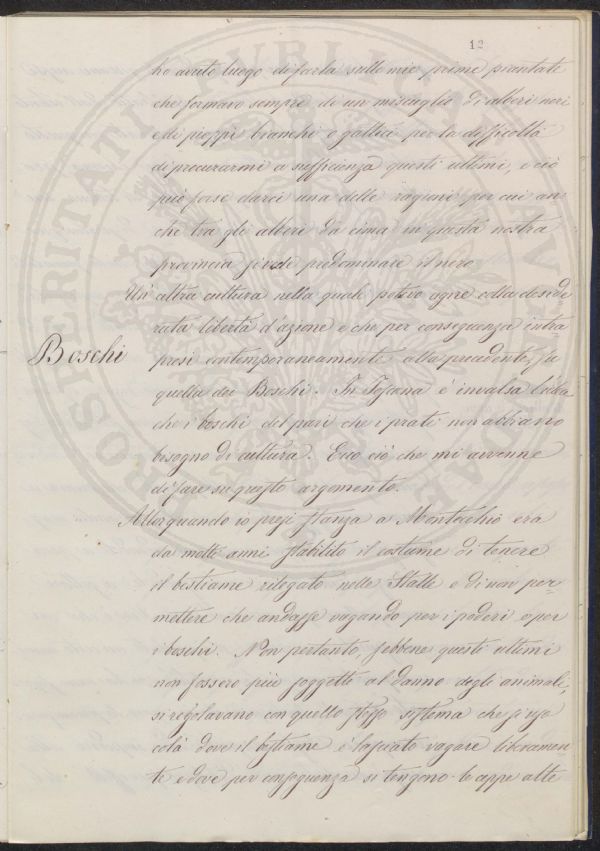 12
ho avuto luogo di farla sulle mie prime piantate
che formavo sempre di un miscuglio di alberi neri
e di pioppi bianchi o gattici per la difficoltà
di procurarmi a sufficienza questi ultimi, e ciò
può forse darci una delle ragioni per cui an-
che tra gli alberi da cima in questa nostra
provincia si vede predominare il nero
Un' altra cultura nella quale potevo agire colla deside
rata libertà d'azione e che per conseguenza intra
Boschi
presi contemporaneamente alla precedente, fu
quella dei Boschi. In Toscana è invalsa l'idea
che i boschi del pari che i prati non abbiano
bisogno di cultura. Ecco ciò che mi avvenne
di fare su questo argomento.
Allorquando io presi stanza a Montecchio era
da molti anni stabilito il costume di tenere
il bestiame rilegato nelle Stalle e di non per-
mettere che andasse vagando per i poderi o per
i boschi. Non pertanto, sebbene questi ultimi
non fossero più soggetti al danno degli animali,
si regolavano con quello stesso sistema che si usa
colà dove il bestiame è lasciato vagare liberamen-
te e dove per conseguenza si tengono le ceppe alte
PROSPERITATI PUBLICAE